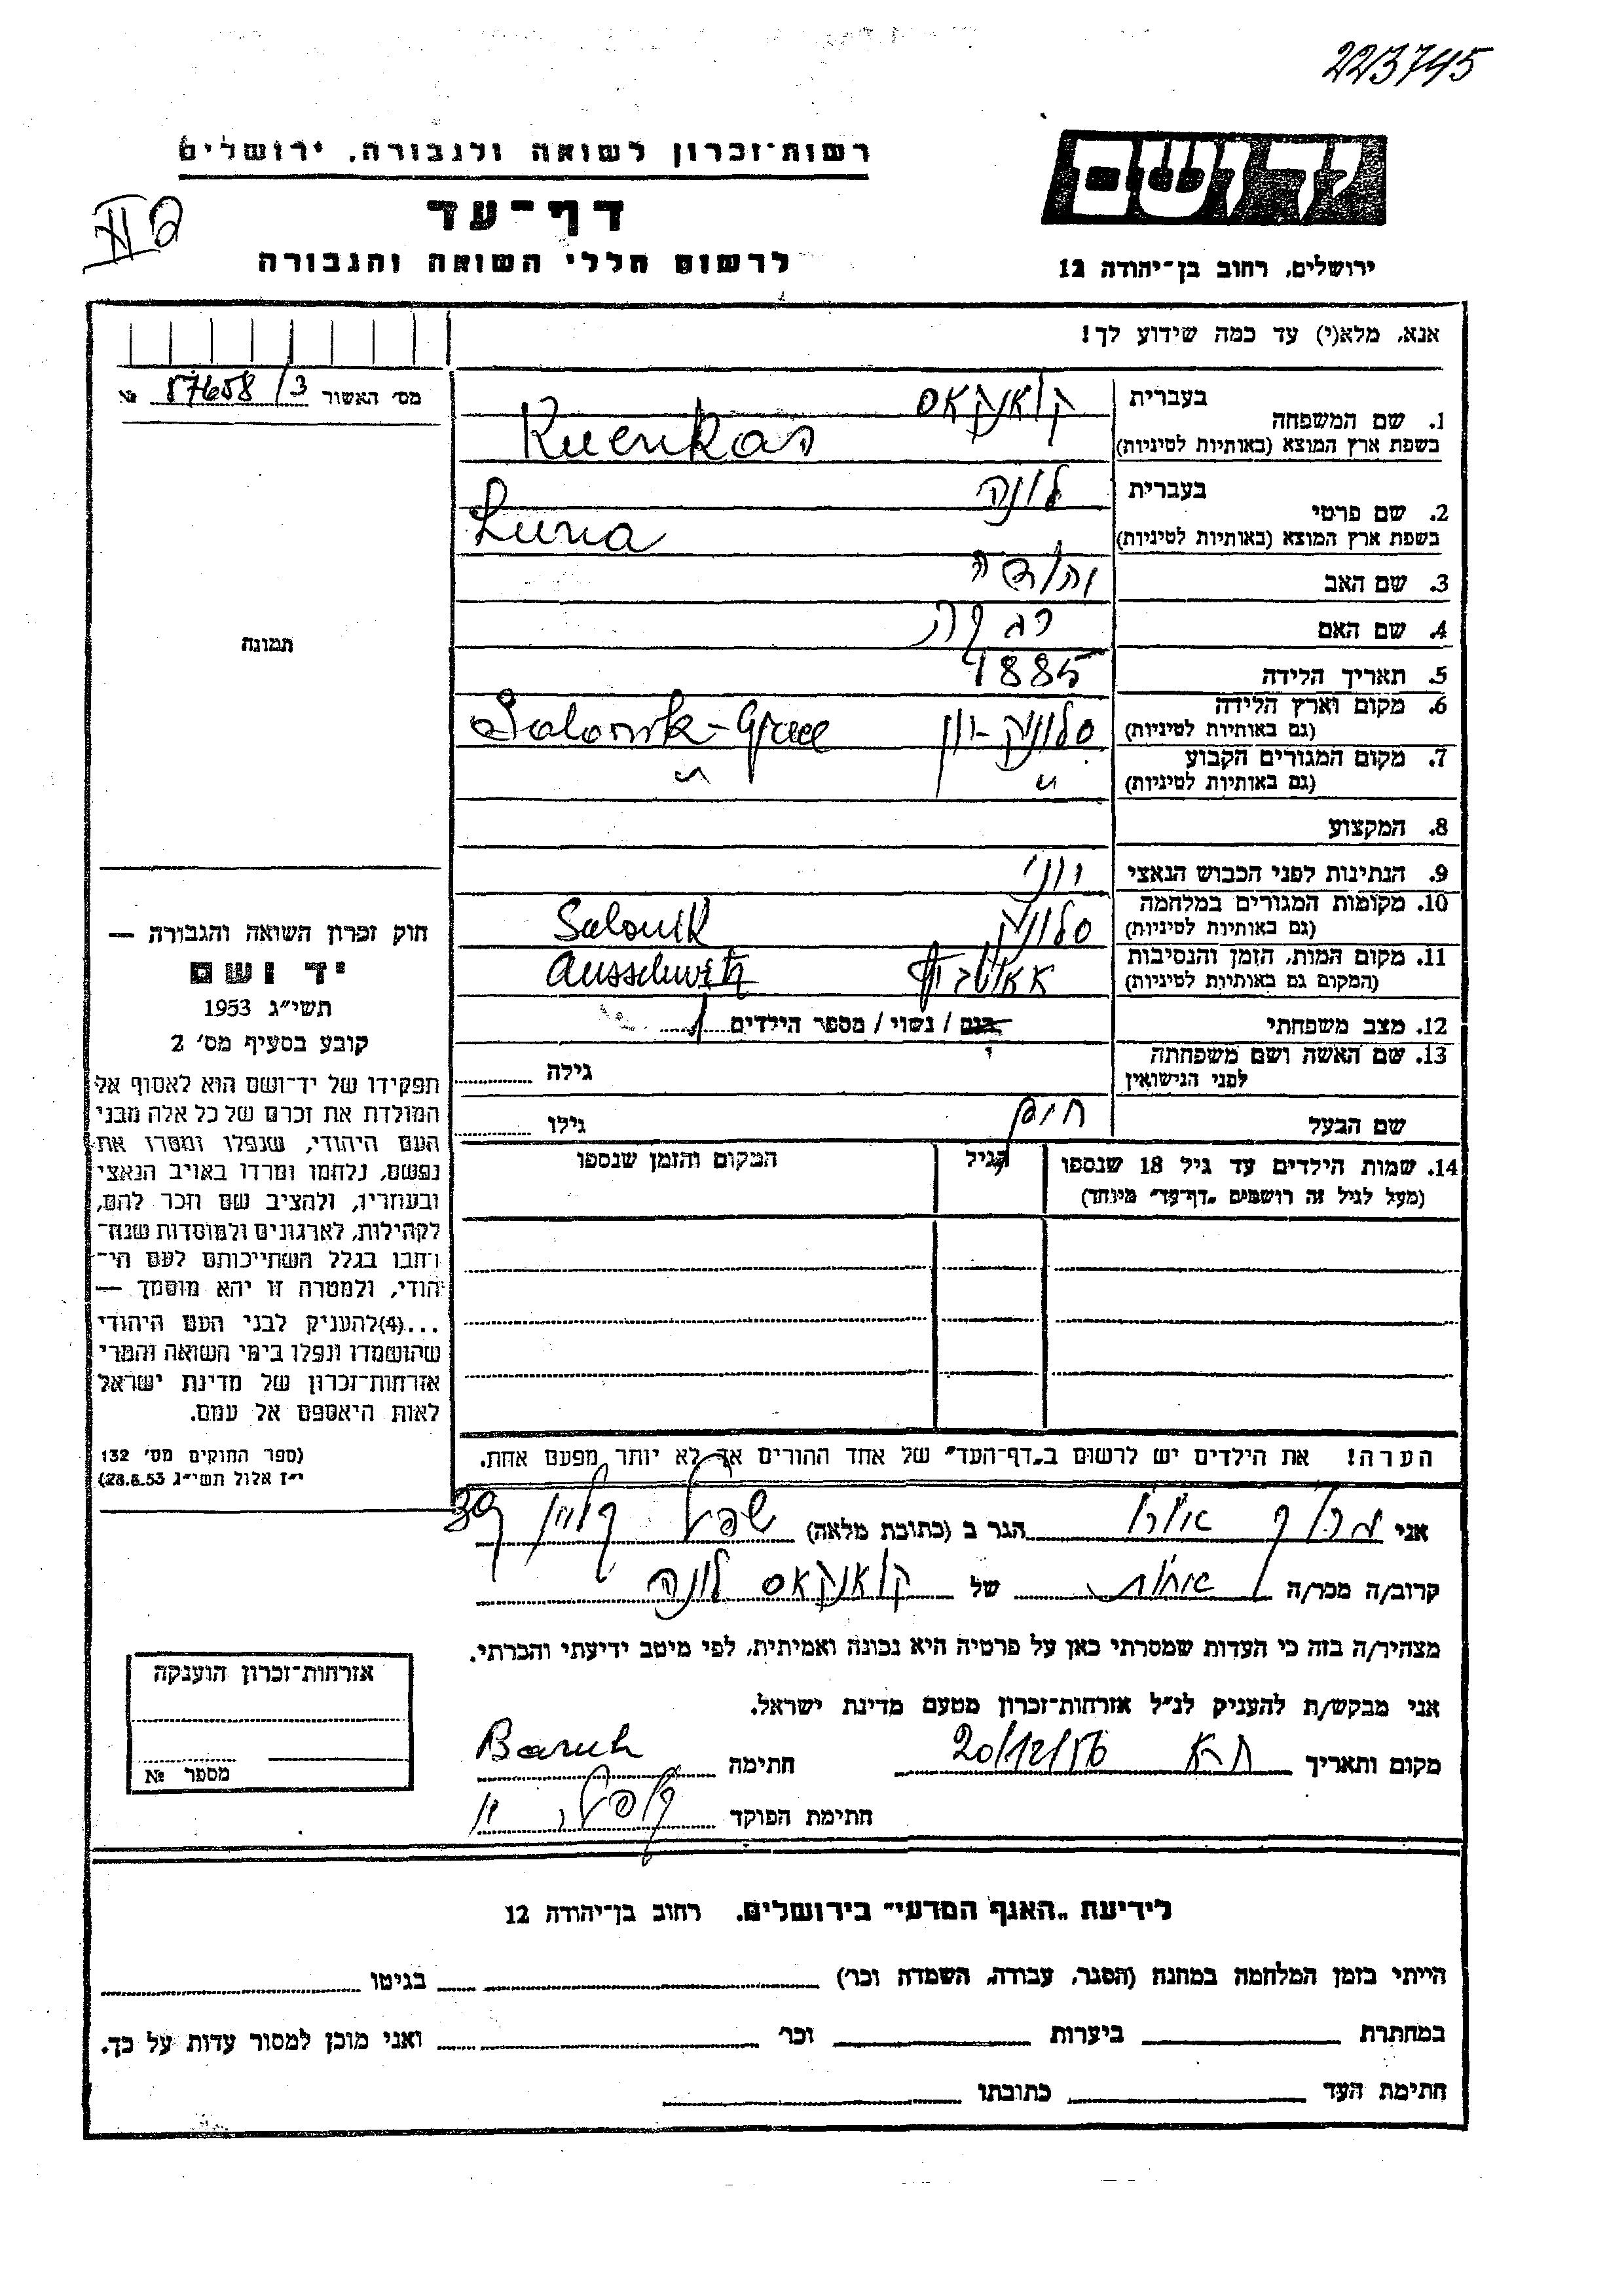 223745
רשות־זכרון לשואה ולגבורה, ירושלים
יד ושם
דף־עד
לרשום חללי השואה והגבורה
ירושלים, רחוב בן־יהודה 12
אנא, מלא(י) עד כמה שידוע לך!
מס׳ האשור 57658/3 №
1. שם המשפחה
בעברית קואנקאס
בשפת ארץ המוצא (באותיות לטיניות) Kuenkas
2. שם פרטי
בעברית לונה
בשפת ארץ המוצא (באותיות לטיניות) Luna
3. שם האב יהודה
4. שם האם
5. תאריך הלידה 1885
6. מקום וארץ הלידה סלוניקי-יון Salonik-Grece
(גם באותיות לטיניות)
7. מקום המגורים הקבוע " "
(גם באותיות לטיניות)
8. המקצוע
9. הנתינות לפני הכבוש הנאצי יוני
10. מקומות המגורים במלחמה סלוניקי Salonik
(גם באותיות לטיניות)
11. מקום המות, הזמן והנסיבות אאושביץ Ausschwitz
(המקום גם באותיות לטיניות)
12. מצב משפחתי רווק / נשוי / מספר הילדים 1
13. שם האשה ושם משפחתה גילה
לפני הנישואין
שם הבעל חיים גילו
תמונה
14. שמות הילדים עד גיל 18 שנספו הגיל המקום והזמן שנספו
(מעל לגיל זה רושמים „דף־עד״ מיוחד)
הערה! את הילדים יש לרשום ב„דף־העד״ של אחד ההורים אך לא יותר מפעם אחת.
חוק זכרון השואה והגבורה —
יד ושם
תשי״ג 1953
קובע בסעיף מס׳ 2
תפקידו של יד־ושם הוא לאסוף אל
המולדת את זכרם של כל אלה מבני
העם היהודי, שנפלו ומסרו את
נפשם, נלחמו ומרדו באויב הנאצי
ובעוזריו, ולהציב שם וזכר להם,
לקהילות, לארגונים ולמוסדות שנח־
רחבו בגלל השתייכותם לעם הי־
הודי, ולמטרה זו יהא מוסמך —
...(4)להעניק לבני העם היהודי
שהושמדו ונפלו בימי השואה והמרי
אזרחות־זכרון של מדינת ישראל
לאות היאספם אל עמם.
(ספר החוקים מס׳ 132
י״ז אלול תשי״ג 28.8.53)
אני ברוך הגר ב (כתובת מלאה) 39
קרוב/ה מכר/ה אחות של קואנקאס לונה
מצהיר/ה בזה כי העדות שמסרתי כאן על פרטיה היא נכונה ואמיתית, לפי מיטב ידיעתי והכרתי.
אני מבקש/ת להעניק לנ״ל אזרחות־זכרון מטעם מדינת ישראל.
מקום ותאריך ת״א 20/12/56 חתימה Baruh
חתימת הפוקד
אזרחות־זכרון הוענקה
מספר №
לידיעת „האגף המדעי״ בירושלים. רחוב בן־יהודה 12
הייתי בזמן המלחמה במחנה (הסגר, עבודה, השמדה וכר׳) בגיטו
במחתרת ביערות וכר׳ ואני מוכן למסור עדות על כך.
חתימת העד כתובתו